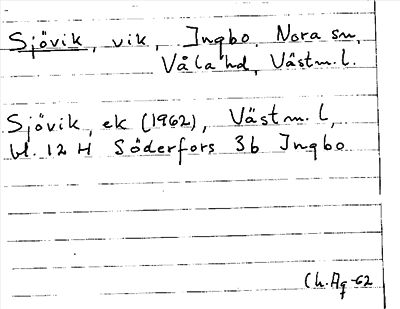 Sjövik, vik, Ingbo. Nora sn,
Våla hd, Västm. l.
Sjövik, ek (1962), Västm. l,
bl. 12 H Söderfors 3b Ingbo
Ch. Ag -62